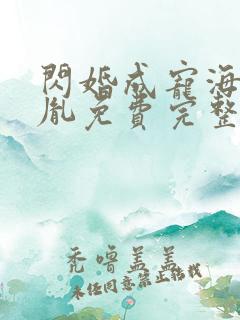 閃婚成寵海
胤免費完整
禿嚕蓋蓋
未经同意禁止转载